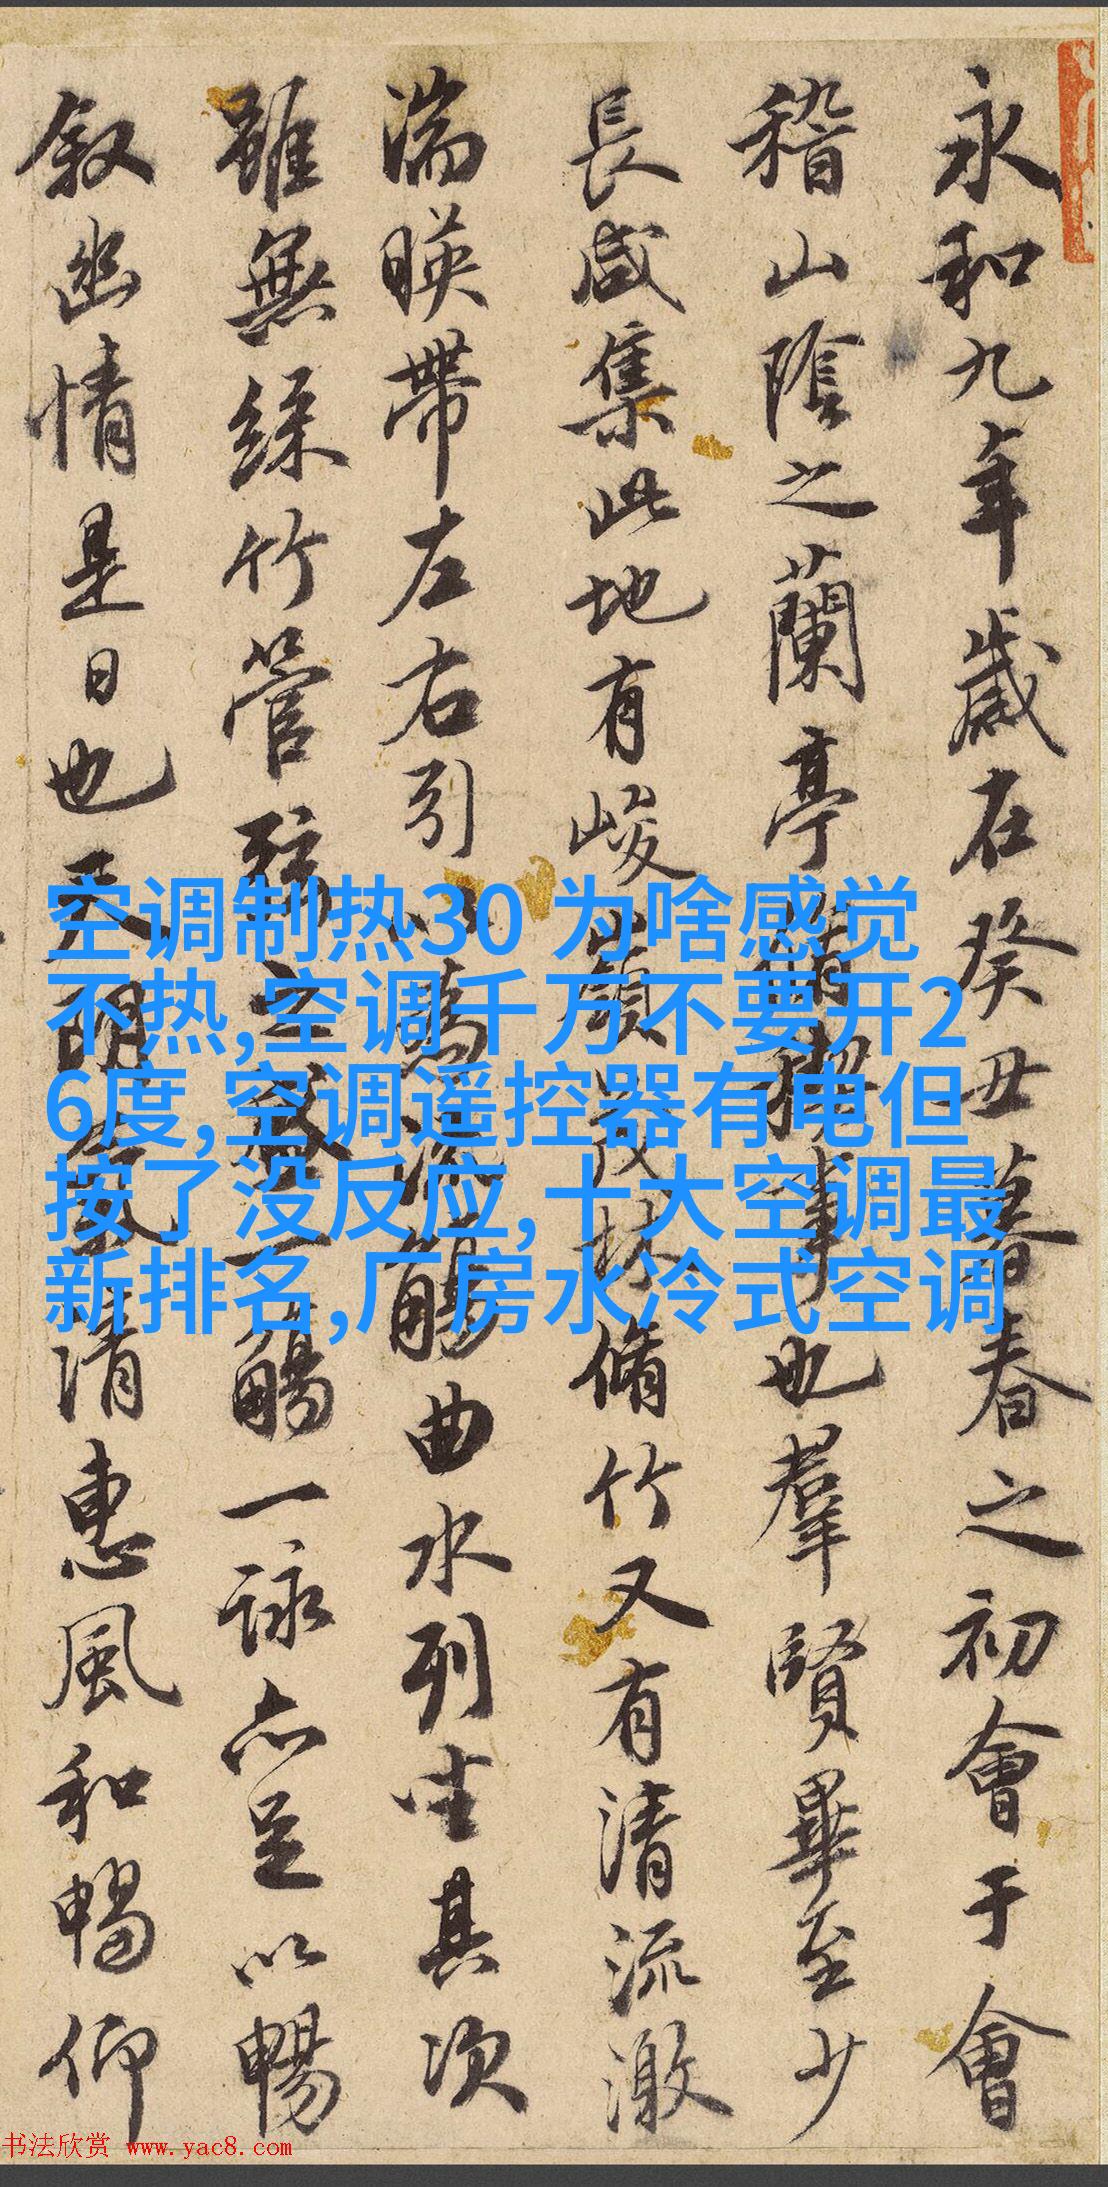 永和九年歲在癸丑暮春之初會于會
稽山陰之蘭亭脩稧事也羣賢畢至少
長咸集此地有峻嶺茂林脩竹又有清流激
湍暎帶左右引以為流觴曲水列坐其次
雖無絲竹管弦之盛一觴一詠亦足以暢
叙幽情是日也天朗氣清惠風和暢仰
空调制热30 为啥感觉
不热,空调千万不要开2
6度,空调遥控器有电但
按了没反应,十大空调最
新排名,厂房水冷式空调
书法欣赏 www.yac8.com